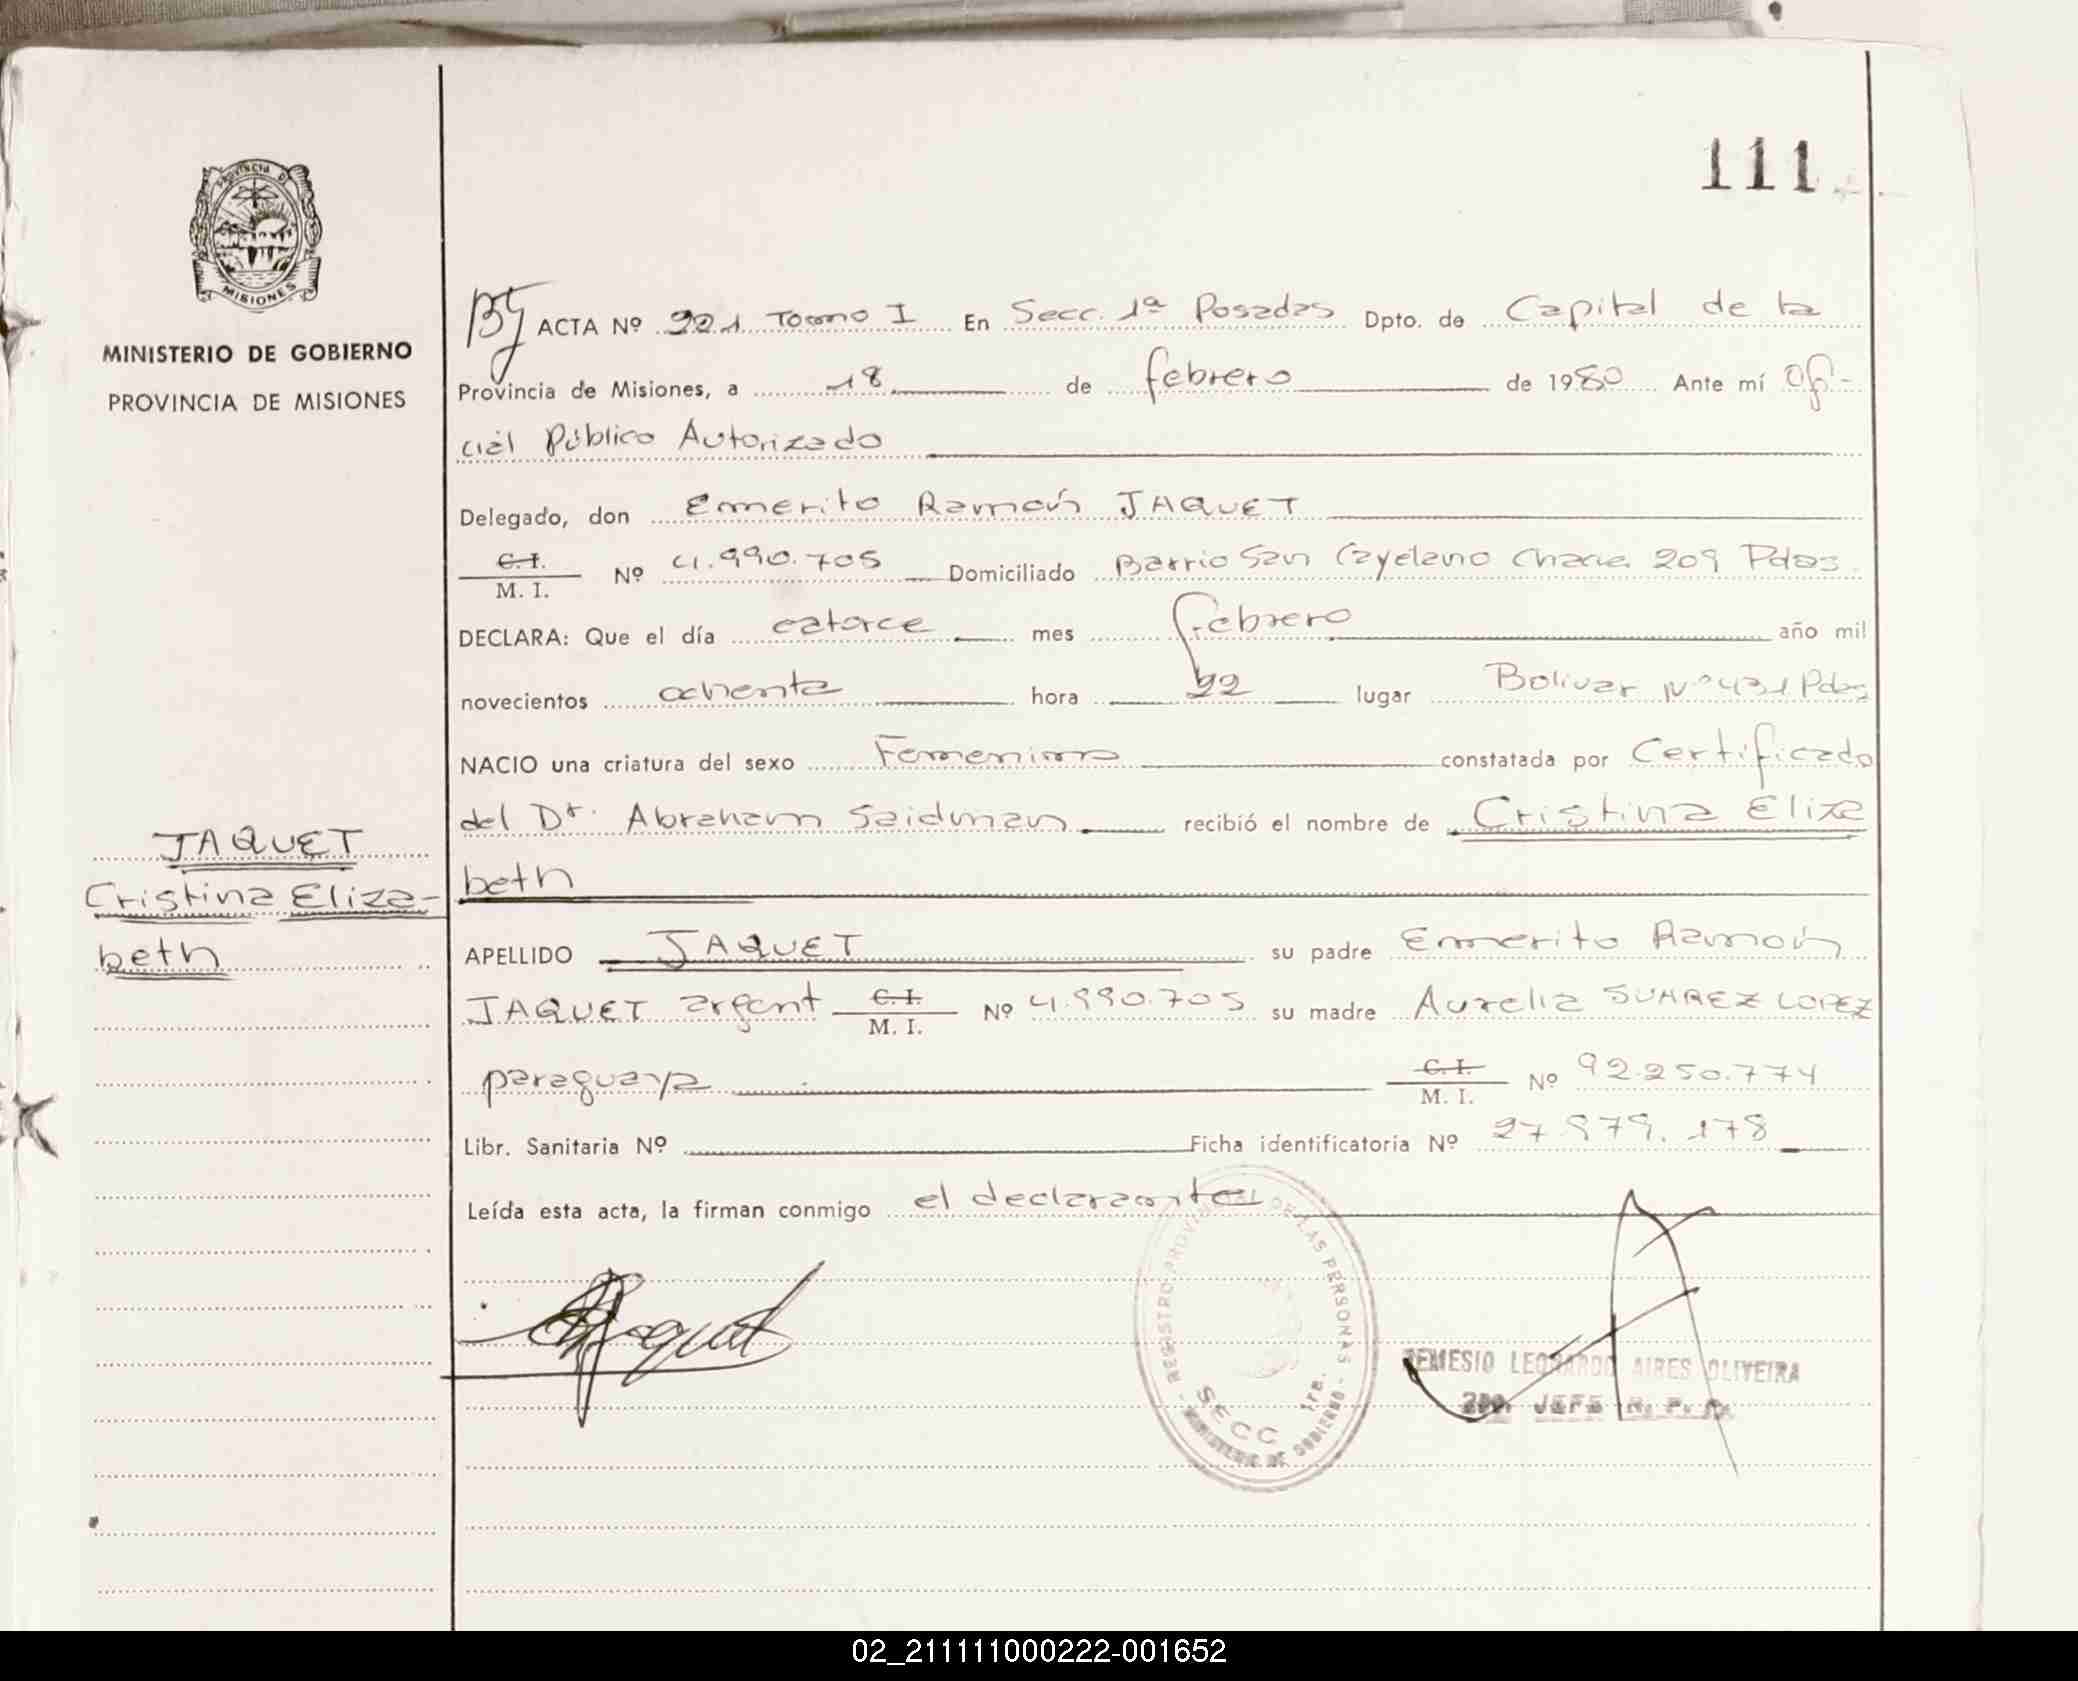 111
PROVINCIA DE
MISIONES
MINISTERIO DE GOBIERNO
PROVINCIA DE MISIONES
ACTA Nº 221 Tomo I En Secc. 1ª Posadas Dpto. de Capital de la
Provincia de Misiones, a 18 de febrero de 1980 Ante mí Ofi-
cial Público Autorizado
Delegado, don Emerito Ramón JAQUET
C.I. M.I. Nº 4.990.705 Domiciliado Barrio San Cayetano Chacra 209 Pdas.
DECLARA: Que el día catorce mes febrero año mil
novecientos ochenta hora 22 lugar Bolivar Nº 431 Pdas
NACIO una criatura del sexo Femenino constatada por Certificado
del Dr. Abraham Saidman recibió el nombre de Cristina Eliza
beth
JAQUET
Cristina Eliza-
beth
APELLIDO JAQUET su padre Emerito Ramón
JAQUET argent C.I. M.I. Nº 4.990.705 su madre Aurelia SUAREZ LOPEZ
paraguaya C.I. M.I. Nº 92.250.774
Libr. Sanitaria Nº Ficha identificatoria Nº 27.979.178
Leída esta acta, la firman conmigo el declarante
REGISTRO PROVINCIAL DE LAS PERSONAS
SECC 1ra.
MINISTERIO DE GOBIERNO
NEMESIO LEONARDO AIRES OLIVEIRA
2DO. JEFE R. P. P.
02_211111000222-001652